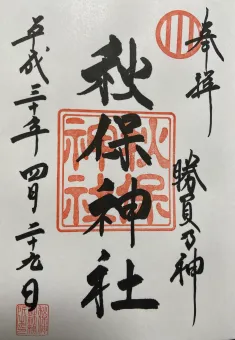 奉拝
勝負の神
秋保神社
秋保神社
平成三十年四月二十九日